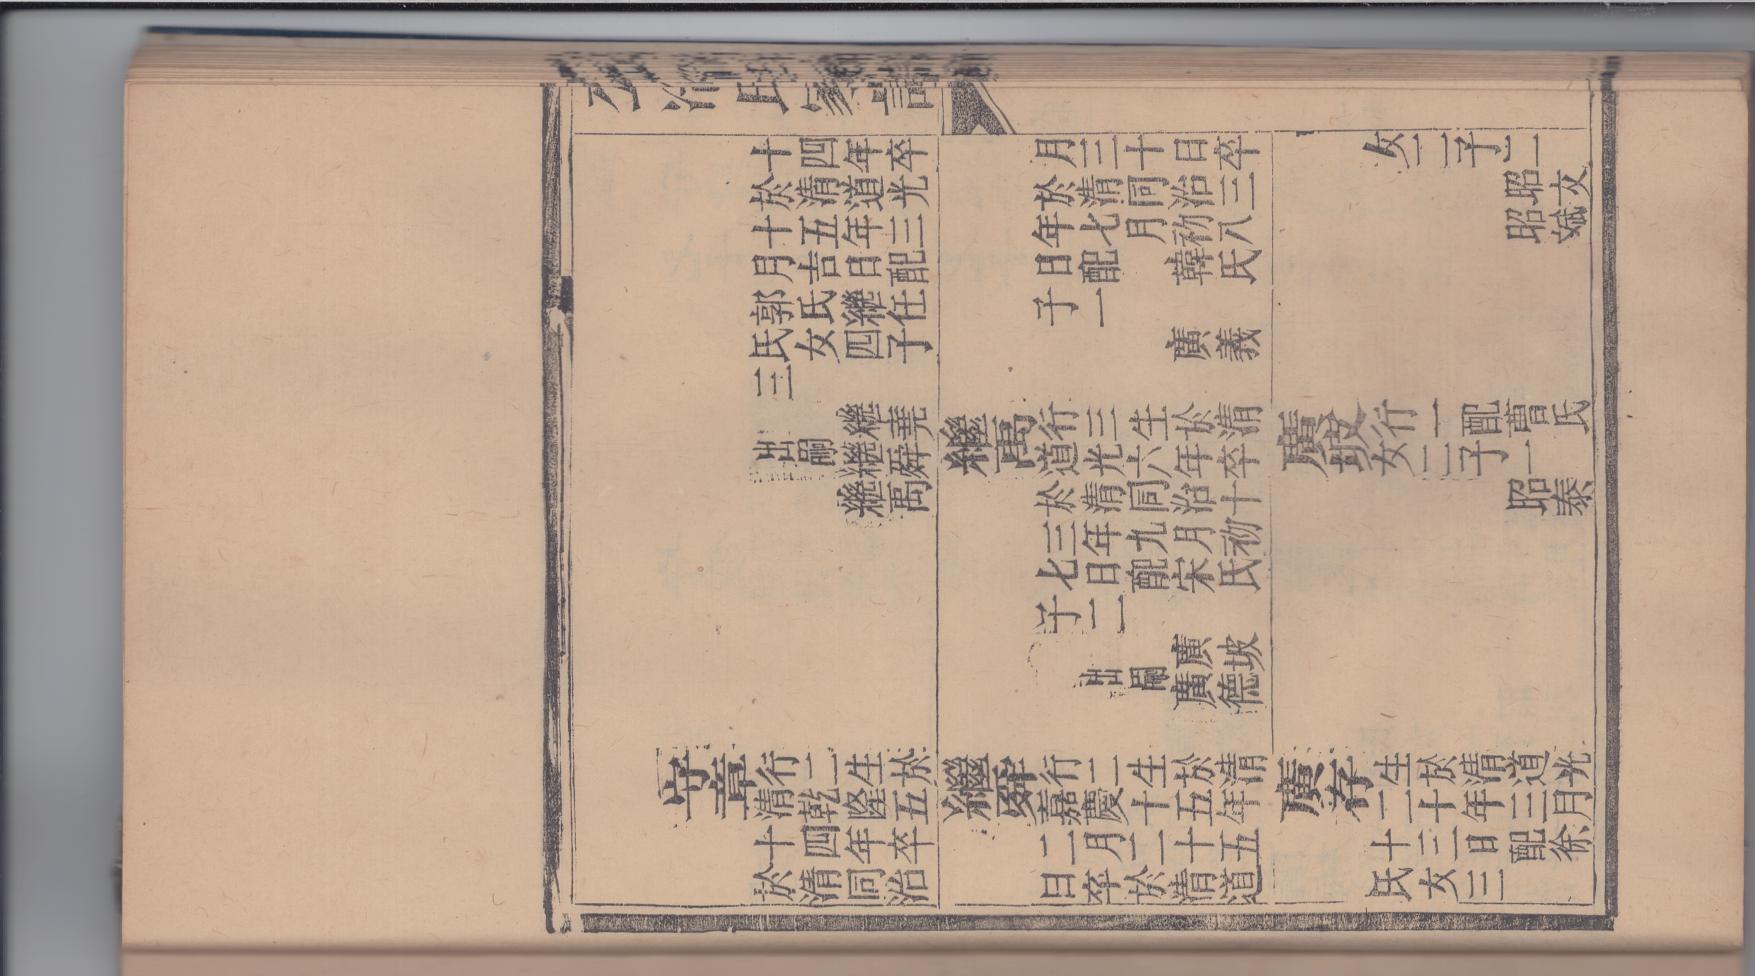 公冶氏家譜
十四年卒
於清道光
十五年三
月吉日配
郭氏繼任
氏女四子
三
繼堯
出嗣繼舜
繼禹
守章行二生於
清乾隆五
十四年卒
於清同治
月三十日卒
於清同治三
年七月初八
日配韓氏
子一
廣義
繼禹行三生於清
道光六年卒
於清同治十
三年九月初
七日配宋氏
子二
廣坡
出嗣廣德
繼舜行二生於清
嘉慶十五年
二月二十五
日卒於清道
女二子二
昭文
昭斌
廣坡行二配曹氏
女二子一
昭泰
廣存生於清道光
二十年三月
十三日配徐
氏女三